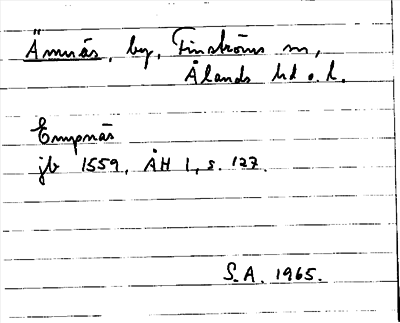 Ämnäs, by, Finströms sn,
Ålands hd o. l.
Empnäs
jb 1559, ÅH 1, s. 127.
S.A. 1965.